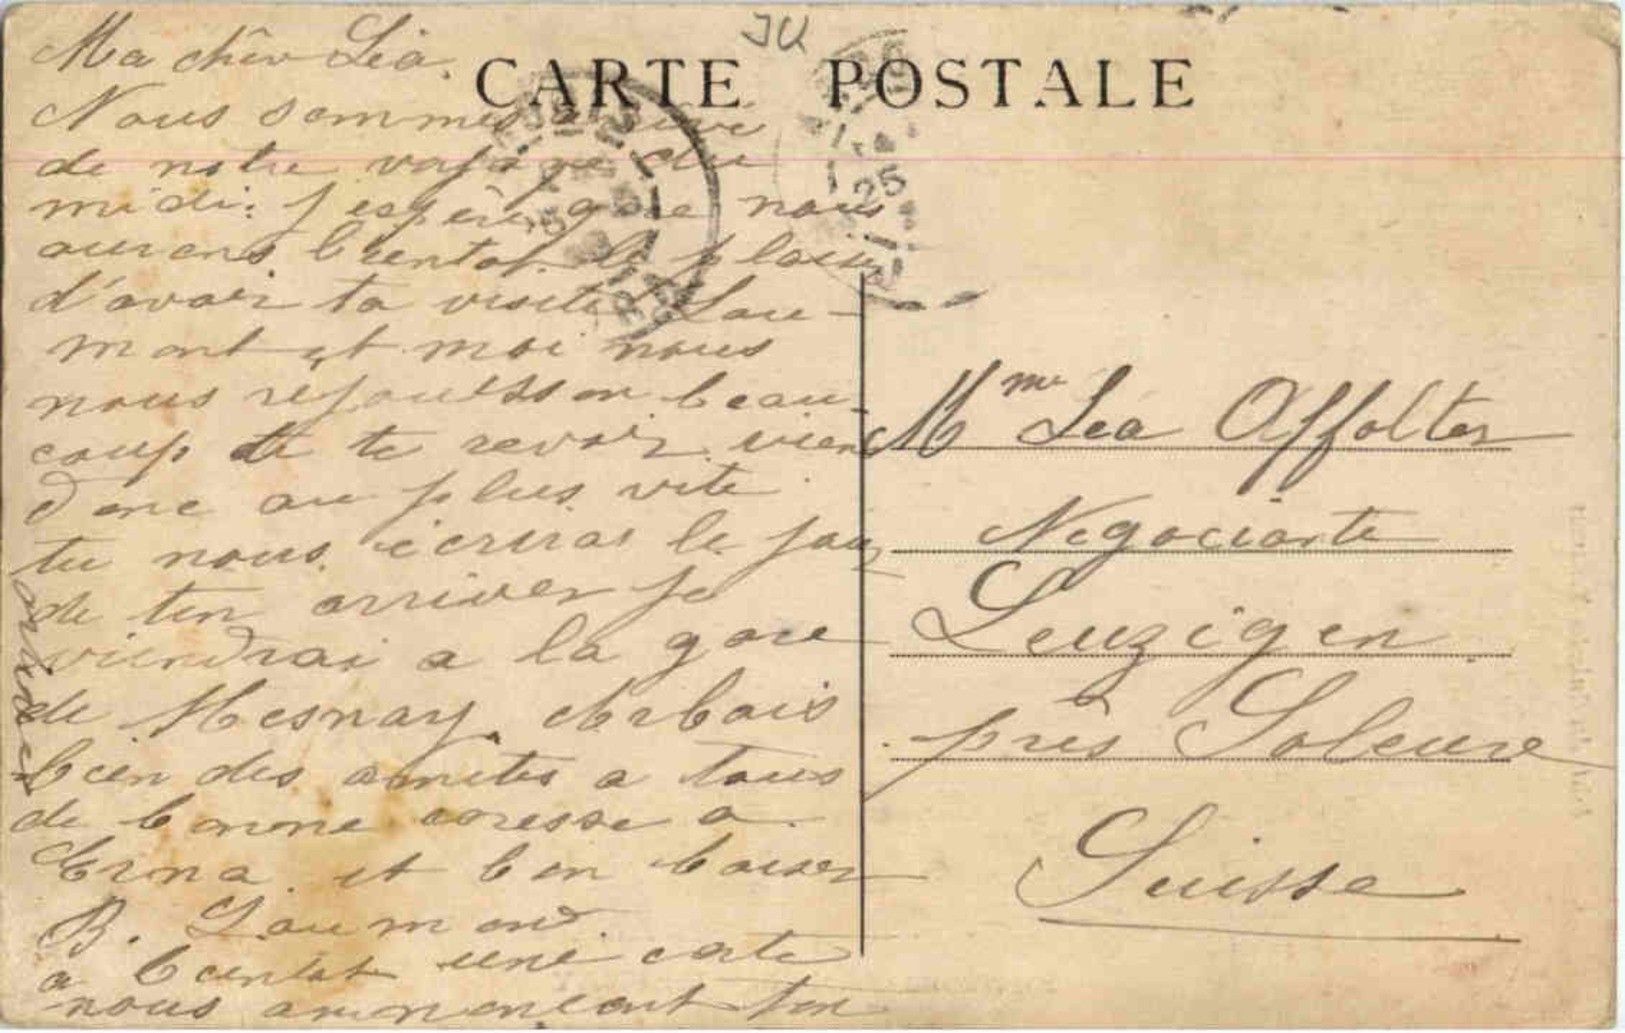 JU
CARTE POSTALE
25
Ma chèr Léa.
Nous sommes
de notre voyage du
midi. j espère que nous
aurons bientot le plaisir
d'avoir ta visite Lau-
mont et moi nous
nous rejouisson beau-
coup de te revoir vien
donc au plus vite
tu nous écriras le jour
de ton arriver je
viendrai a la gare
de Mesnay. Arbois
bien des amités a tous
de bonne caresse a
Erna et bon baiser
B. Laumont
a bientot une carte
nous annoncent ton
arriver
Mme Léa Affolter
Negociante
Leuzigen
près Soleure
Suisse